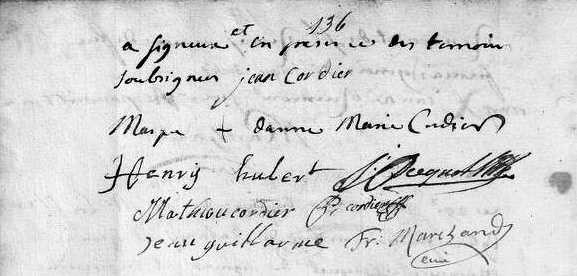 136
a signeux et en presence des temoin
soubsignes jean Cordier
Marque + danne Marie Cudier
Henry hubert
Mathieu cordier P: cordier
jean guillarme Fr: Marchand
curé